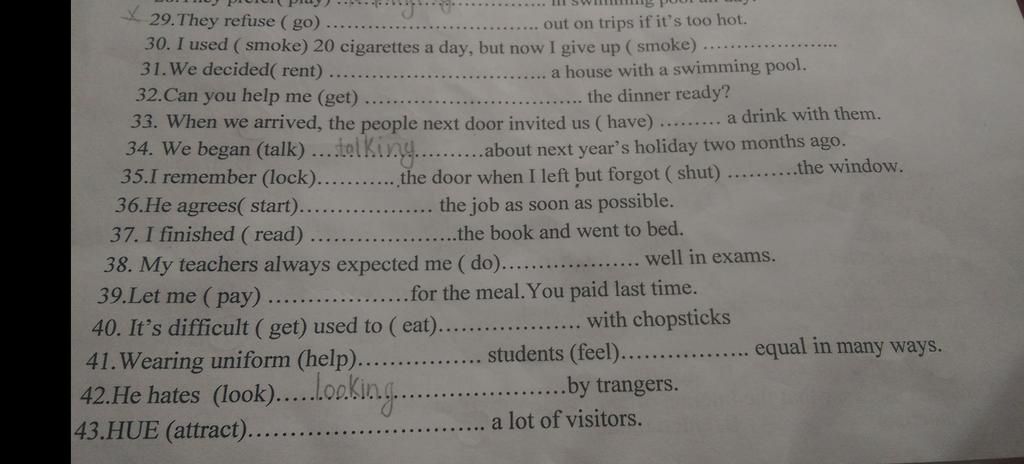 29.They refuse ( go) ........................................ out on trips if it's too hot.
30. I used ( smoke) 20 cigarettes a day, but now I give up ( smoke) ........................
31.We decided( rent) ........................................ a house with a swimming pool.
32.Can you help me (get) ........................................ the dinner ready?
33. When we arrived, the people next door invited us ( have) ......... a drink with them.
34. We began (talk) ....talking............about next year's holiday two months ago.
35.I remember (lock)............the door when I left but forgot ( shut) ..........the window.
36.He agrees( start)....................... the job as soon as possible.
37. I finished ( read) .........................the book and went to bed.
38. My teachers always expected me ( do)....................... well in exams.
39.Let me ( pay) ........................for the meal.You paid last time.
40. It's difficult ( get) used to ( eat)........................ with chopsticks
41.Wearing uniform (help)..................... students (feel)..................... equal in many ways.
42.He hates (look).....looking.............................by trangers.
43.HUE (attract)........................................ a lot of visitors.